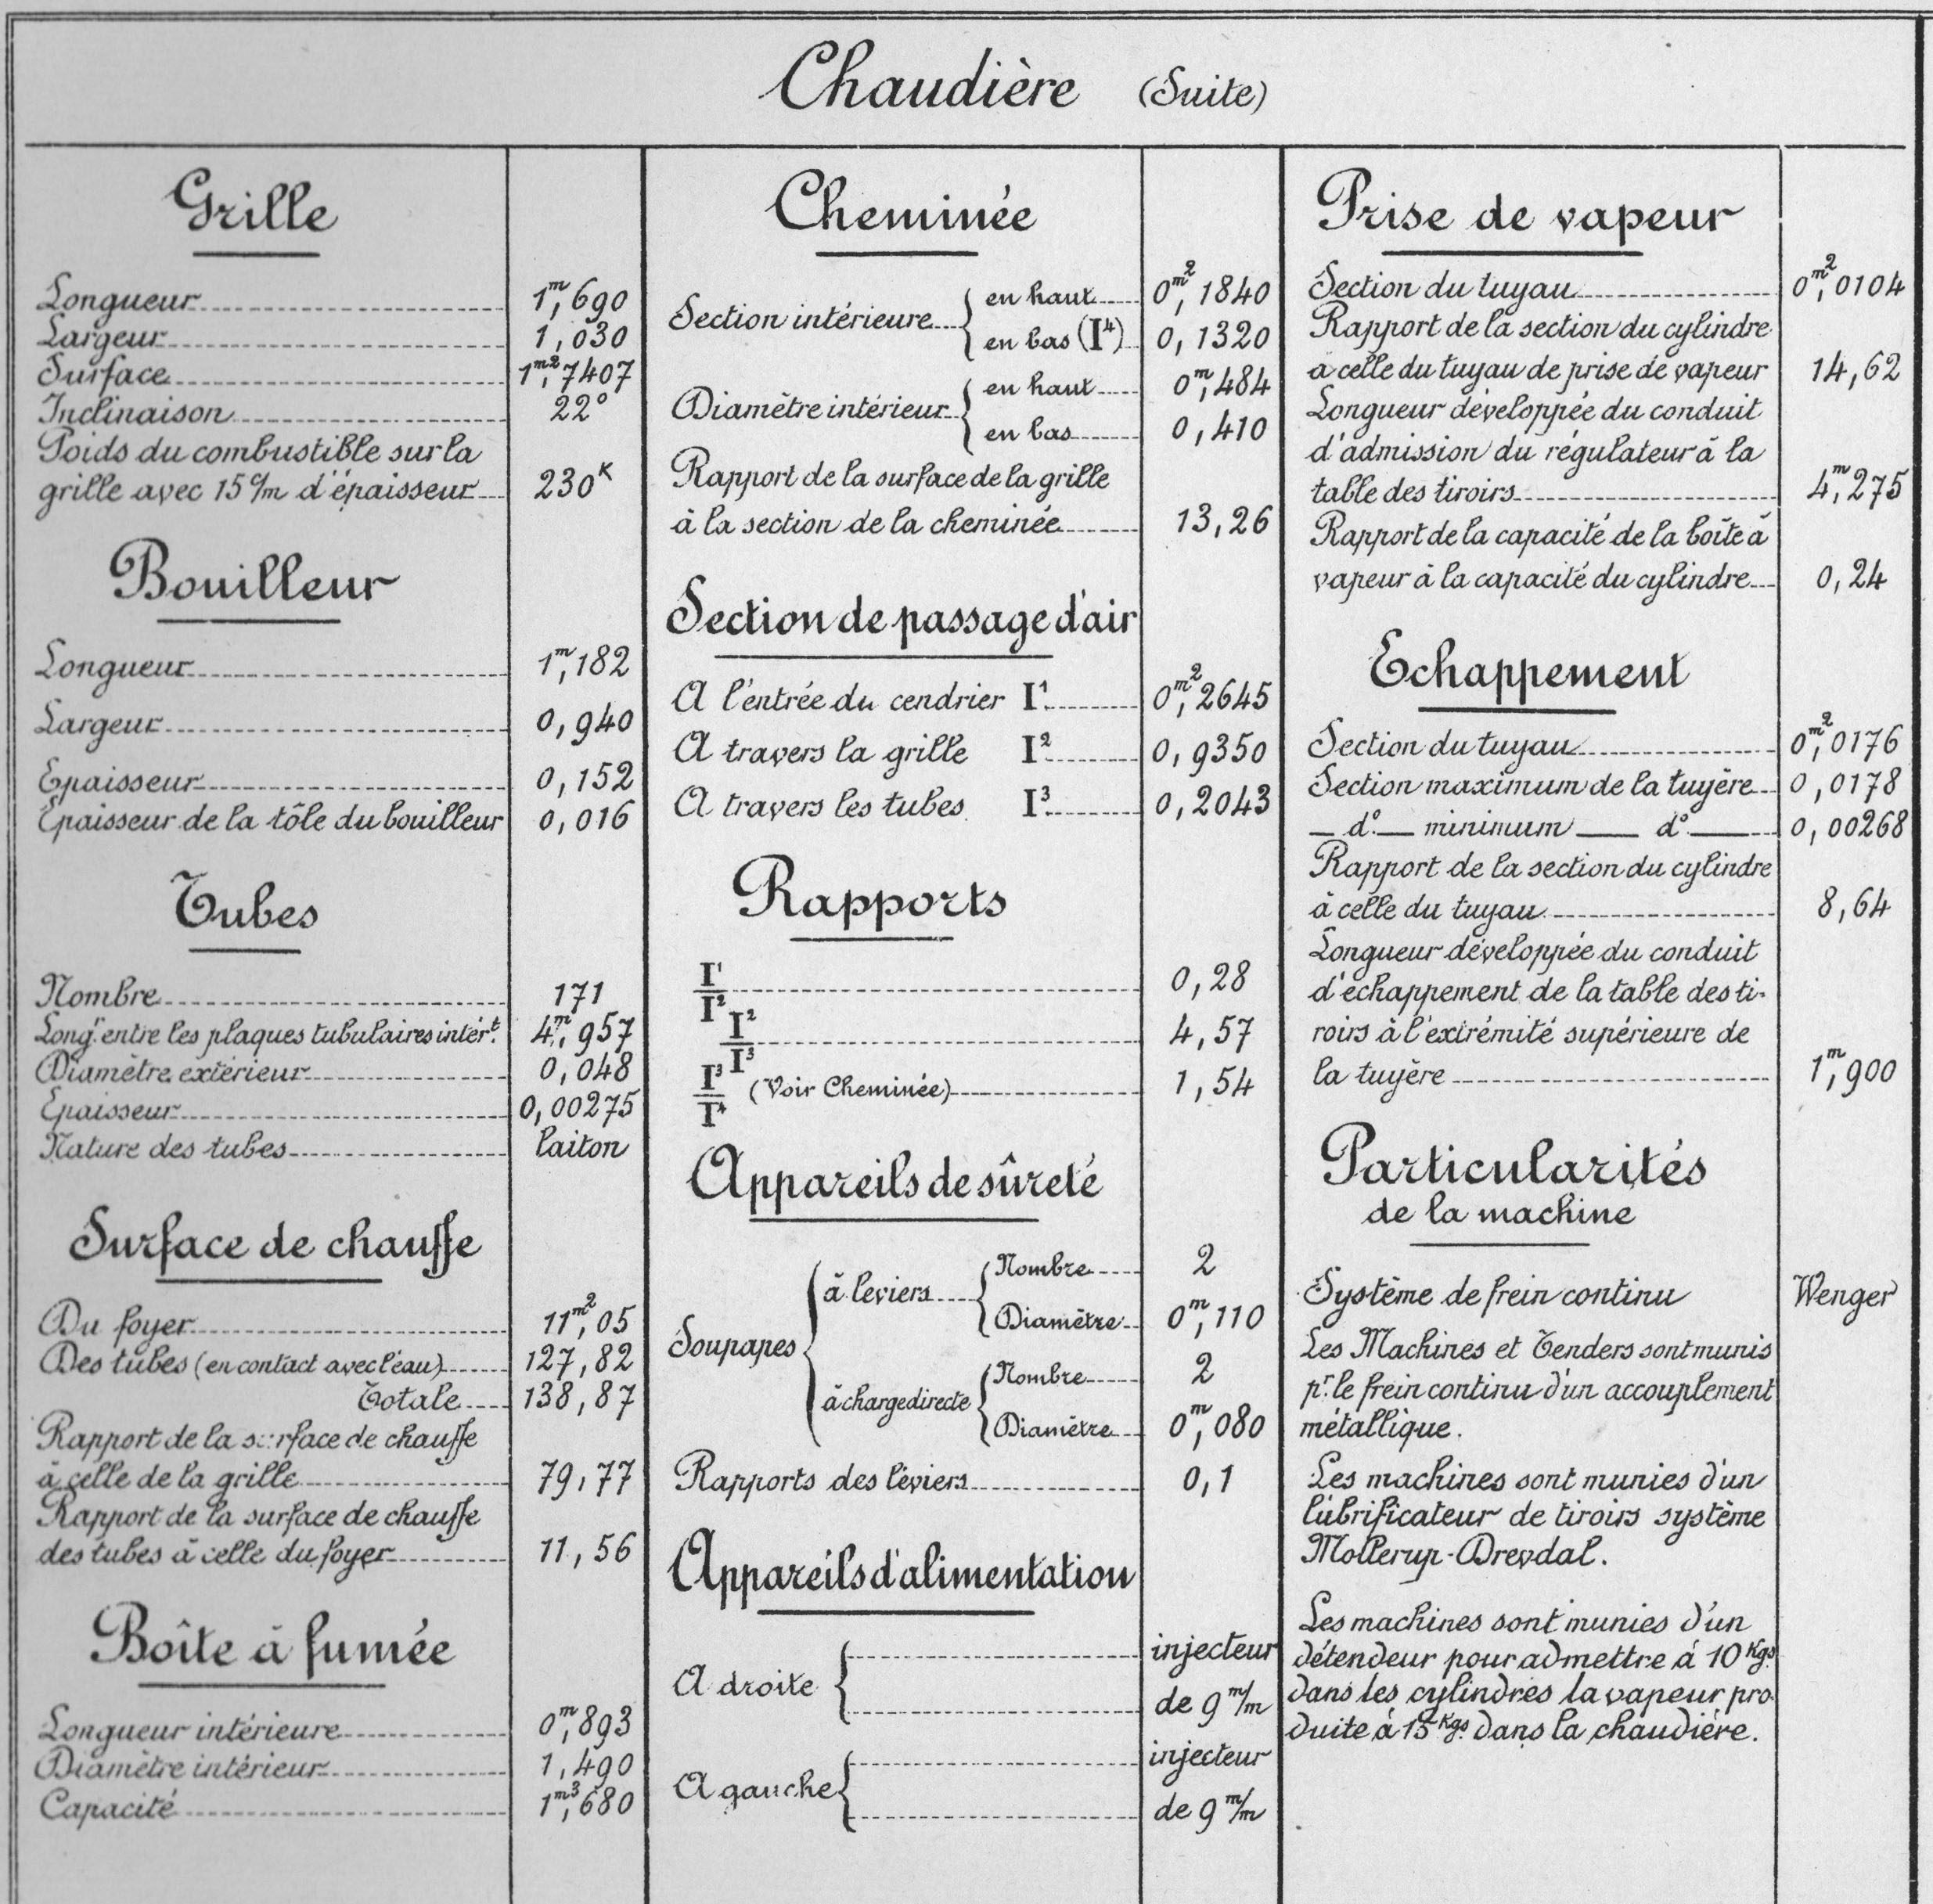 Chaudière (Suite)
Grille
Longueur 1ᵐ,690
Largeur 1,030
Surface 1ᵐ²,7407
Inclinaison 22°
Poids du combustible sur la
grille avec 15 c/m d'épaisseur 230ᴷ
Bouilleur
Longueur 1ᵐ,182
Largeur 0,940
Epaisseur 0,152
Epaisseur de la tôle du bouilleur 0,016
Tubes
Nombre 171
Longʳ entre les plaques tubulaires intérᵗ 4ᵐ,957
Diamètre extérieur 0,048
Epaisseur 0,00275
Nature des tubes laiton
Surface de chauffe
Du foyer 11ᵐ²,05
Des tubes (en contact avec l'eau) 127,82
Totale 138,87
Rapport de la surface de chauffe
à celle de la grille 79,77
Rapport de la surface de chauffe
des tubes à celle du foyer 11,56
Boîte à fumée
Longueur intérieure 0ᵐ,893
Diamètre intérieur 1,490
Capacité 1ᵐ³,680
Cheminée
Section intérieure { en haut 0ᵐ²,1840
en bas (I⁴) 0,1320
Diamètre intérieur { en haut 0ᵐ,484
en bas 0,410
Rapport de la surface de la grille
à la section de la cheminée 13,26
Section de passage d'air
A l'entrée du cendrier I¹ 0ᵐ²,2645
A travers la grille I² 0,9350
A travers les tubes I³ 0,2043
Rapports
I¹/I² 0,28
I²/I³ 4,57
I³/I⁴ (Voir Cheminée) 1,54
Appareils de sûreté
Soupapes { à leviers { Nombre 2
Diamètre 0ᵐ,110
à charge directe { Nombre 2
Diamètre 0ᵐ,080
Rapports des léviers 0,1
Appareils d'alimentation
A droite { injecteur
de 9 m/m
A gauche { injecteur
de 9 m/m
Prise de vapeur
Section du tuyau 0ᵐ²,0104
Rapport de la section du cylindre
à celle du tuyau de prise de vapeur 14,62
Longueur développée du conduit
d'admission du régulateur à la
table des tiroirs 4ᵐ,275
Rapport de la capacité de la boîte à
vapeur à la capacité du cylindre 0,24
Echappement
Section du tuyau 0ᵐ²,0176
Section maximum de la tuyère 0,0178
— dº — minimum — dº — 0,00268
Rapport de la section du cylindre
à celle du tuyau 8,64
Longueur développée du conduit
d'échappement de la table des ti-
roirs à l'extrémité supérieure de
la tuyère 1ᵐ,900
Particularités
de la machine
Système de frein continu Wenger
Les Machines et Tenders sont munis
pʳ le frein continu d'un accouplement
métallique.
Les machines sont munies d'un
lubrificateur de tiroirs système
Mollerup-Drevdal.
Les machines sont munies d'un
détendeur pour admettre à 10 Kgs
dans les cylindres la vapeur pro-
duite à 15 Kgs. dans la chaudière.